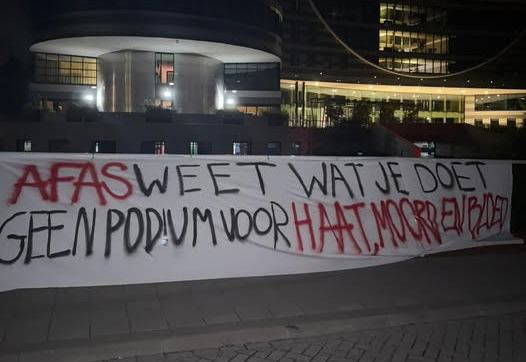 AFAS WEET WAT JE DOET
GEEN PODIUM VOOR HAAT, MOORD EN BLOED